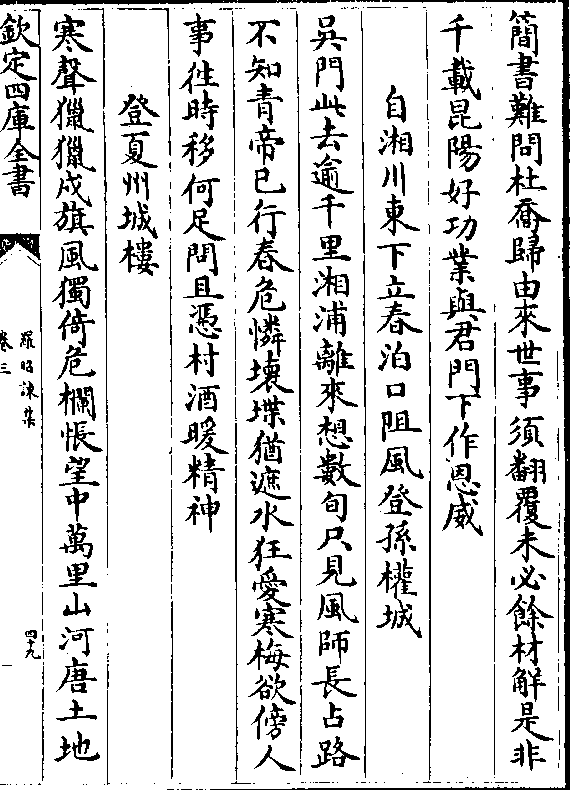 簡書難問杜喬歸由來世事須翻覆未必餘材解是非
千載昆陽好功業與君門下作恩威
自湘川東下立春泊口阻風登孫權城
吳門此去逾千里湘浦離來想數旬只見風師長占路
不知青帝已行春危憐壞堞猶遮水狂愛寒梅欲傍人
事徃時移何足問且憑村酒暖精神
登夏州城樓
寒聲獵獵戍旗風獨倚危欄悵望中萬里山河唐土地
欽定四庫全書
羅昭諫集
卷三
四十九